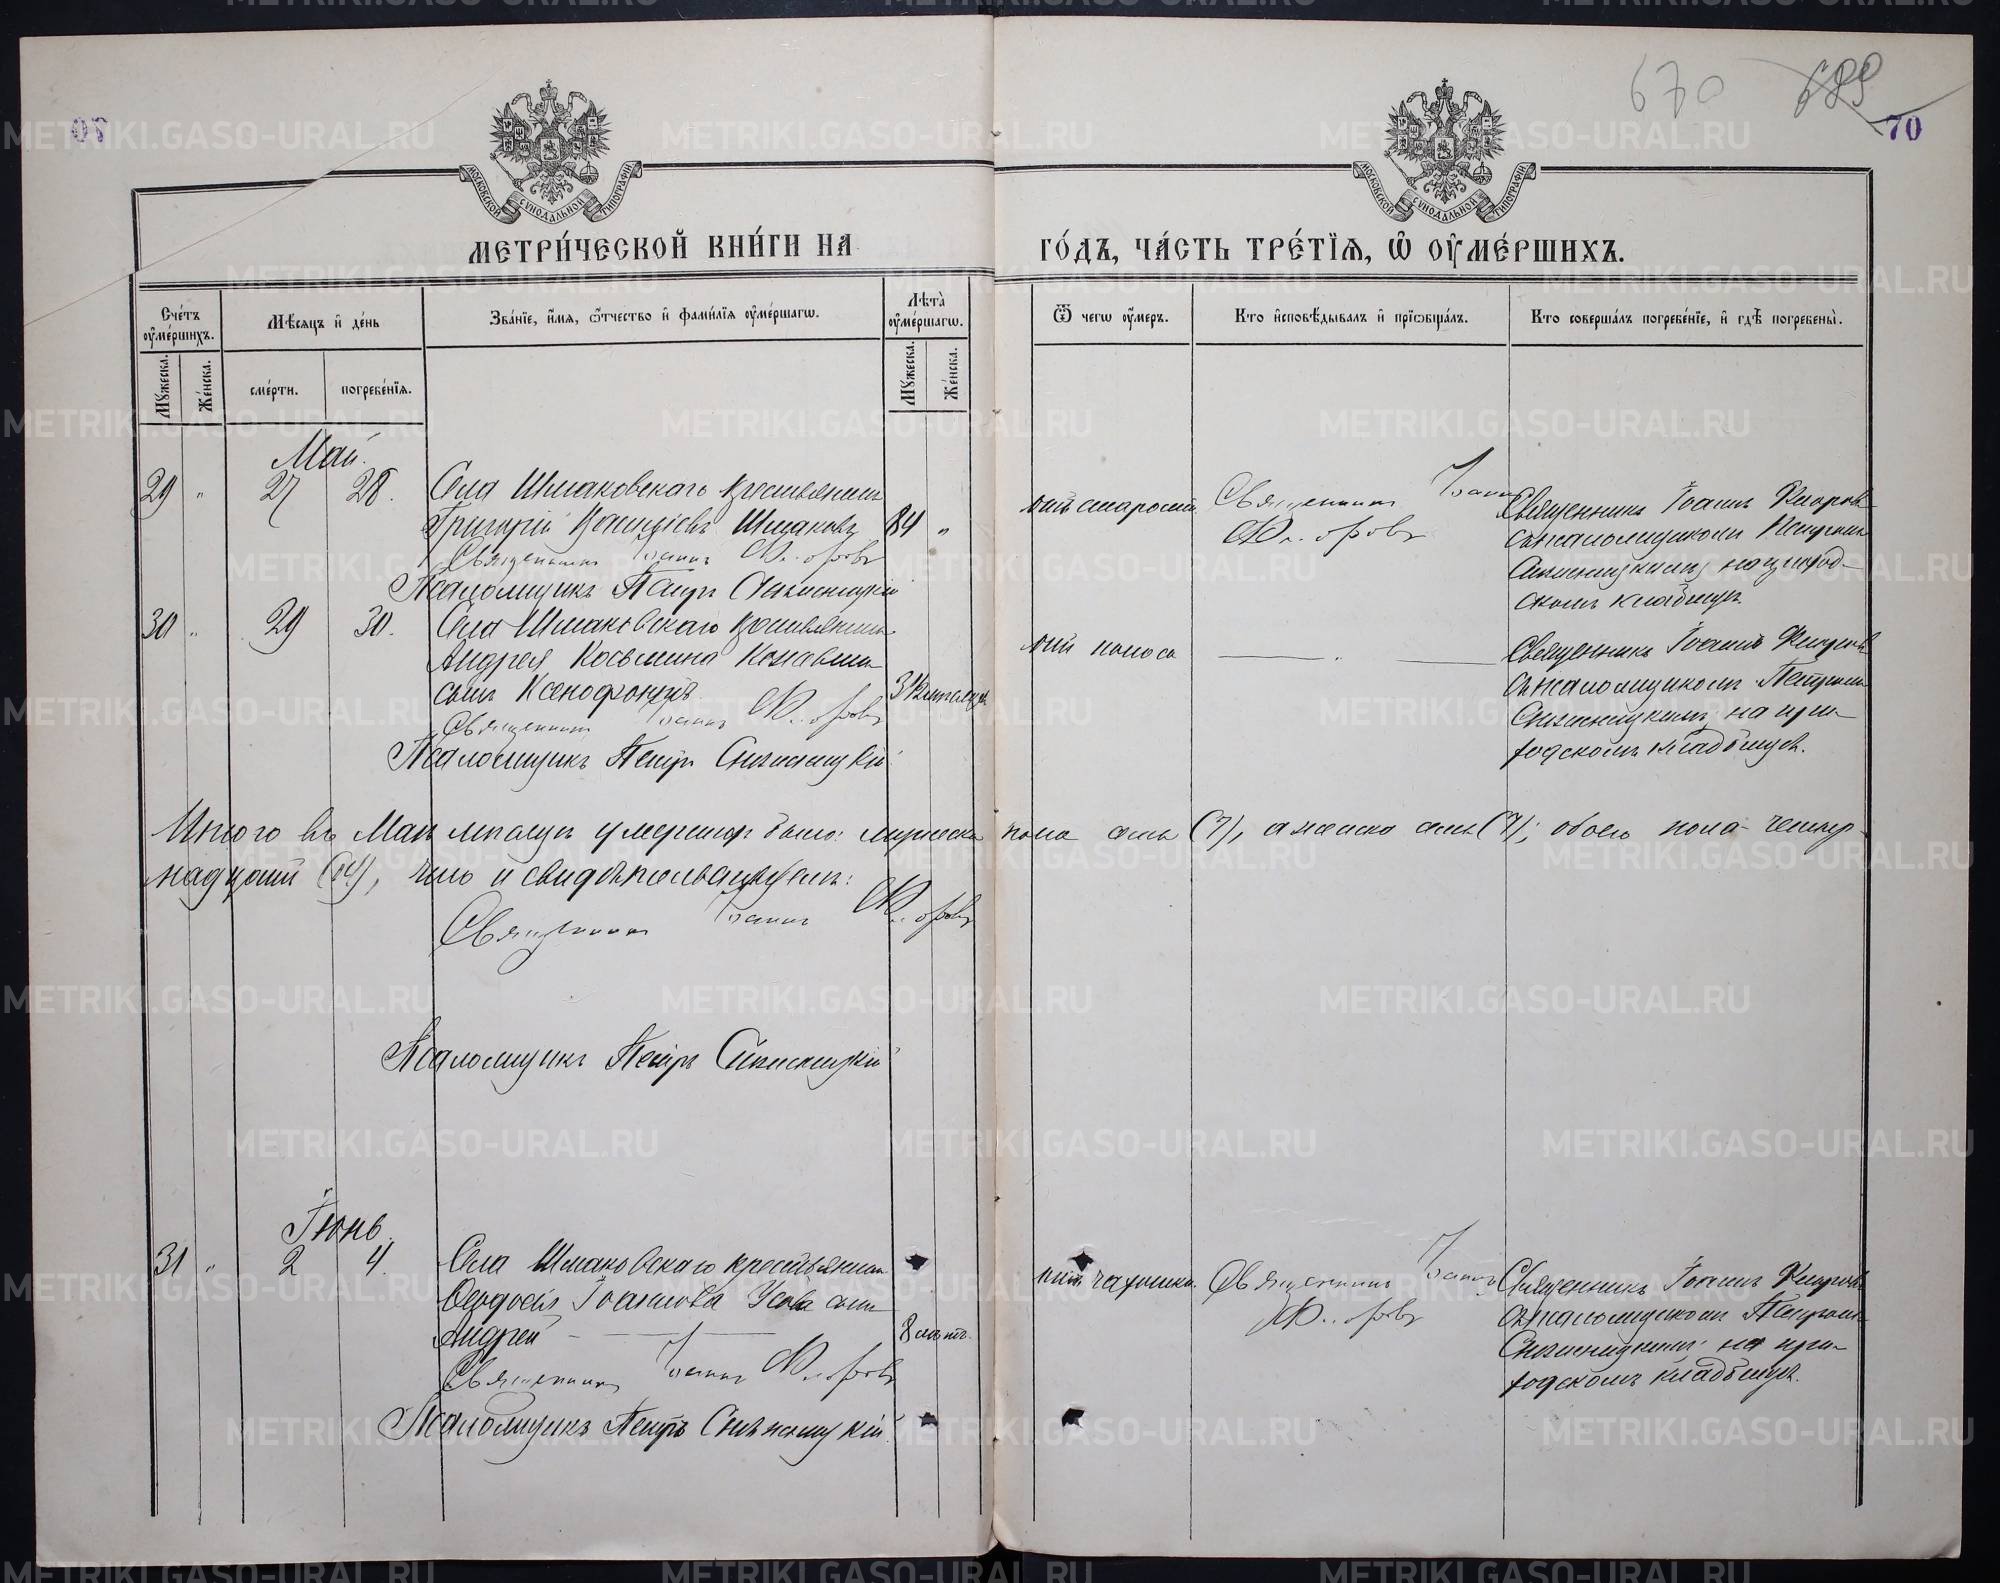 670 689
70
МОСКОВСКОЙ СѴНОДАЛЬНОЙ ТИПОГРАФІИ
МОСКОВСКОЙ СѴНОДАЛЬНОЙ ТИПОГРАФІИ
МЕТРИ́ЧЕСКОЙ КНИ́ГИ НА ГО́ДЪ, ЧА́СТЬ ТРЕ́ТЇѦ, Ѡ҆ ОУ҆МЕ́РШИХЪ.
Сче́тъ оу҆ме́ршихъ.
Мꙋжеска.
Же́нска.
Мѣ́сѧцъ и҆ де́нь
сме́рти.
погребе́нїѧ.
Зва́нїе, и҆́мѧ, ѻ҆́тчество и҆ фами́лїѧ оу҆ме́ршагѡ.
Лѣ́та оу҆ме́ршагѡ.
Мꙋжеска.
Же́нска.
Ѿ чегѡ̀ оу҆́меръ.
Кто̀ и҆сповѣ́дывалъ и҆ прїѡбща́лъ.
Кто̀ соверша́лъ погребе́нїе, и҆ гдѣ̀ погребены̀.
Май.
29 " 27 28. Села Шмаковскаго крестьянинъ
Григорій Шмаковъ 84 "
Священникъ Іоаннъ Флоровъ
Псаломщикъ Петръ Снѣжницкій
отъ старости
Священникъ Іоаннъ
Флоровъ
Священникъ Іоаннъ Флоровъ
съ псаломщикомъ Петромъ
Снѣжницкимъ на приход-
скомъ кладбищѣ.
30 " 29 30. Села Шмаковскаго крестьянина
Андрея Косьмина
сынъ Ксенофонтъ
Священникъ Іоаннъ Флоровъ
Псаломщикъ Петръ Снѣжницкій
отъ поноса
— " —
Священникъ Іоаннъ Флоровъ
съ псаломщикомъ Петромъ
Снѣжницкимъ на при-
ходскомъ кладбищѣ.
Итого въ Маѣ мѣсяцѣ умершихъ было: мужеска пола семь (7), а женска семь (7); обоего пола четыр-
надцать (14), чего и свидѣтельствуемъ:
Священникъ Іоаннъ Флоровъ
Псаломщикъ Петръ Снѣжницкій
Іюнь.
31 " 2 4. Села Шмаковскаго крестьянина
Ѳеодосія Іоаннова Усова сынъ
Андрей 8 лѣтъ.
Священникъ Іоаннъ Флоровъ
Псаломщикъ Петръ Снѣжницкій
отъ чахотки.
Священникъ Іоаннъ
Флоровъ
Священникъ Іоаннъ Флоровъ
съ псаломщикомъ Петромъ
Снѣжницкимъ на при-
ходскомъ кладбищѣ.
METRIKI.GASO-URAL.RU